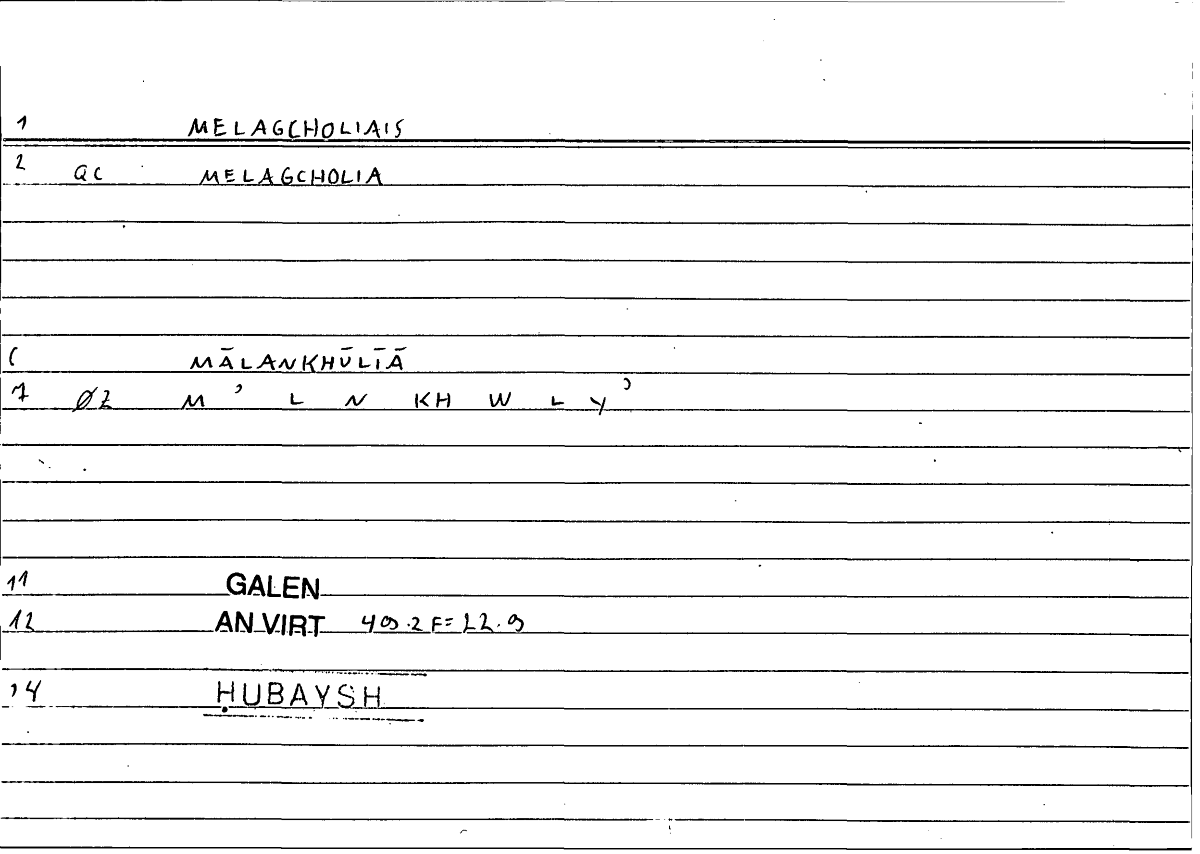 1 MELAGCHOLIAIS
2 QC MELAGCHOLIA
6 MĀLANKHŪLĪĀ
7 ØZ M ʾ L N KH W L Y ʾ
11 GALEN
12 AN VIRT 49.2 F= 22.9
14 ḤUBAYSH